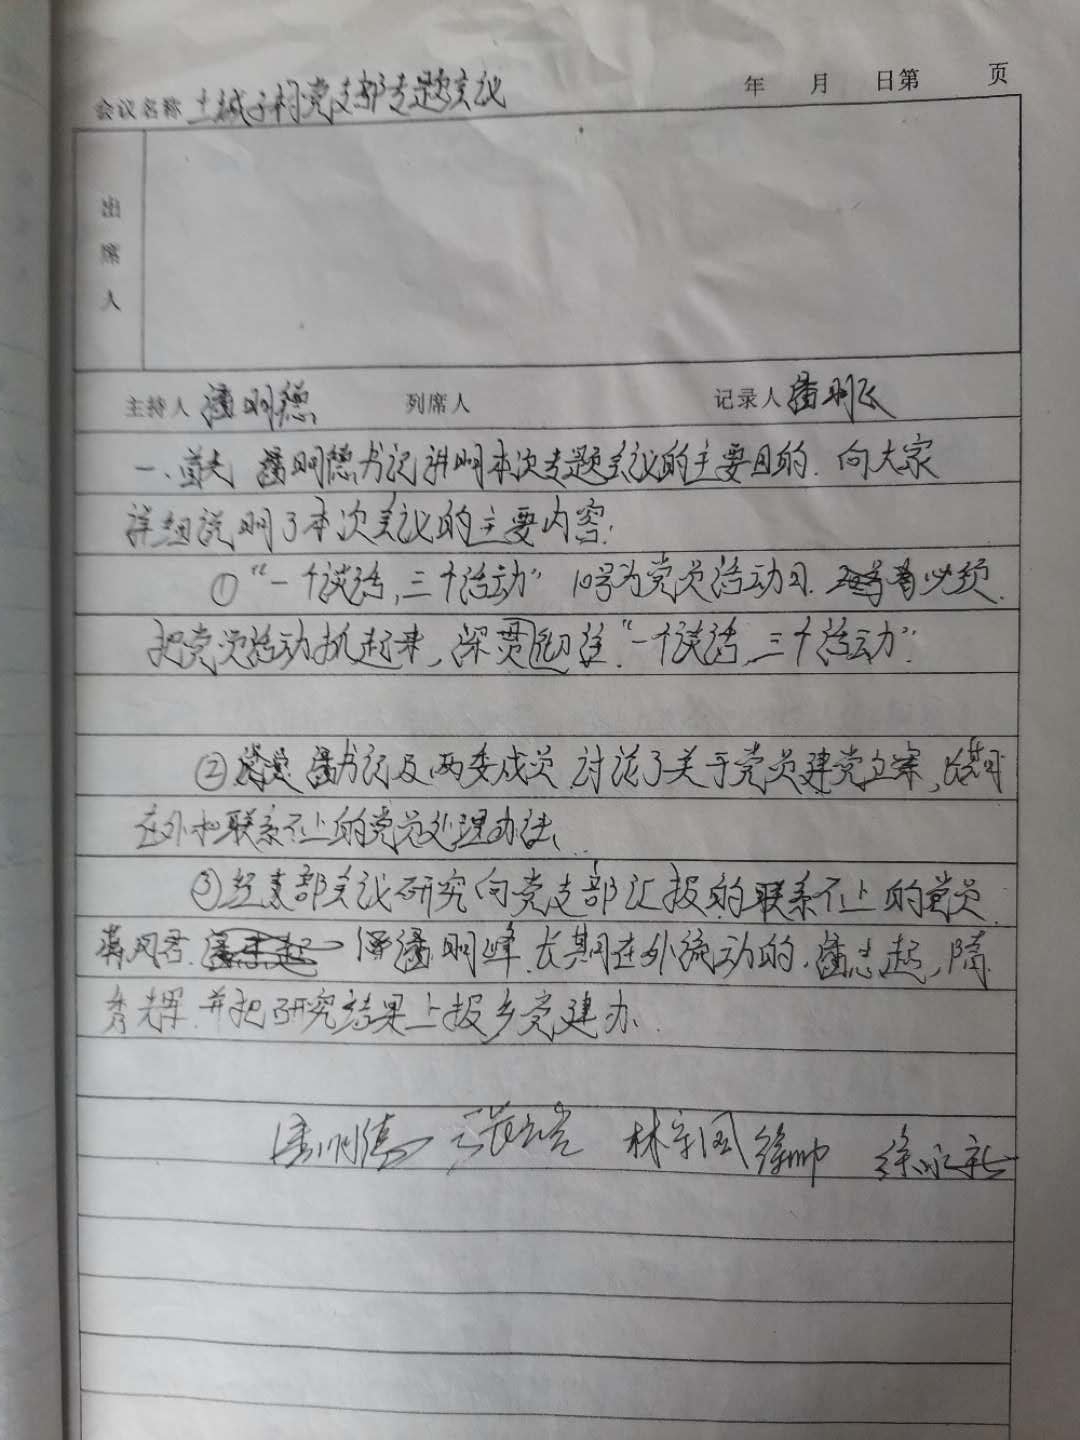 会议名称 土城子村党支部专题会议 年 月 日第 页
出席人
主持人 潘明德 列席人 记录人 潘明飞
一、首先 潘明德书记讲明本次专题会议的主要目的. 向大家
详细说明了本次会议的主要内容:
①“一个谈话,三个活动” 10号为党员活动日. 必须
把党员活动抓起来,深贯彻注“一个谈话,三个活动”.
② 潘书记及两委成员 讨论了关于党员建党立案,长期
在外和联系不上的党员处理办法、
③经支部会议研究向党支部汇报的联系不上的党员
蒋凤君 潘明峰.长期在外流动的.潘志起,隋
秀辉.并把研究结果上报乡党建办.
潘明德 林守国 徐帅 徐永新